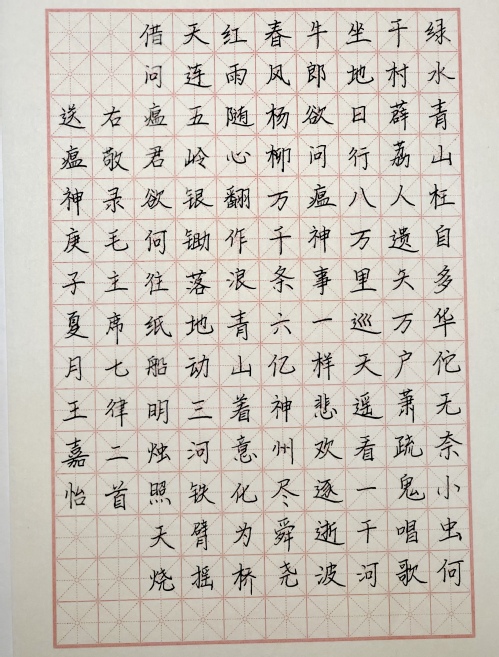 绿水青山枉自多华佗无奈小虫何
千村薜荔人遗矢万户萧疏鬼唱歌
坐地日行八万里巡天遥看一千河
牛郎欲问瘟神事一样悲欢逐逝波
春风杨柳万千条六亿神州尽舜尧
红雨随心翻作浪青山着意化为桥
天连五岭银锄落地动三河铁臂摇
借问瘟君欲何往纸船明烛照天烧
右敬录毛主席七律二首
送瘟神庚子夏月王嘉怡